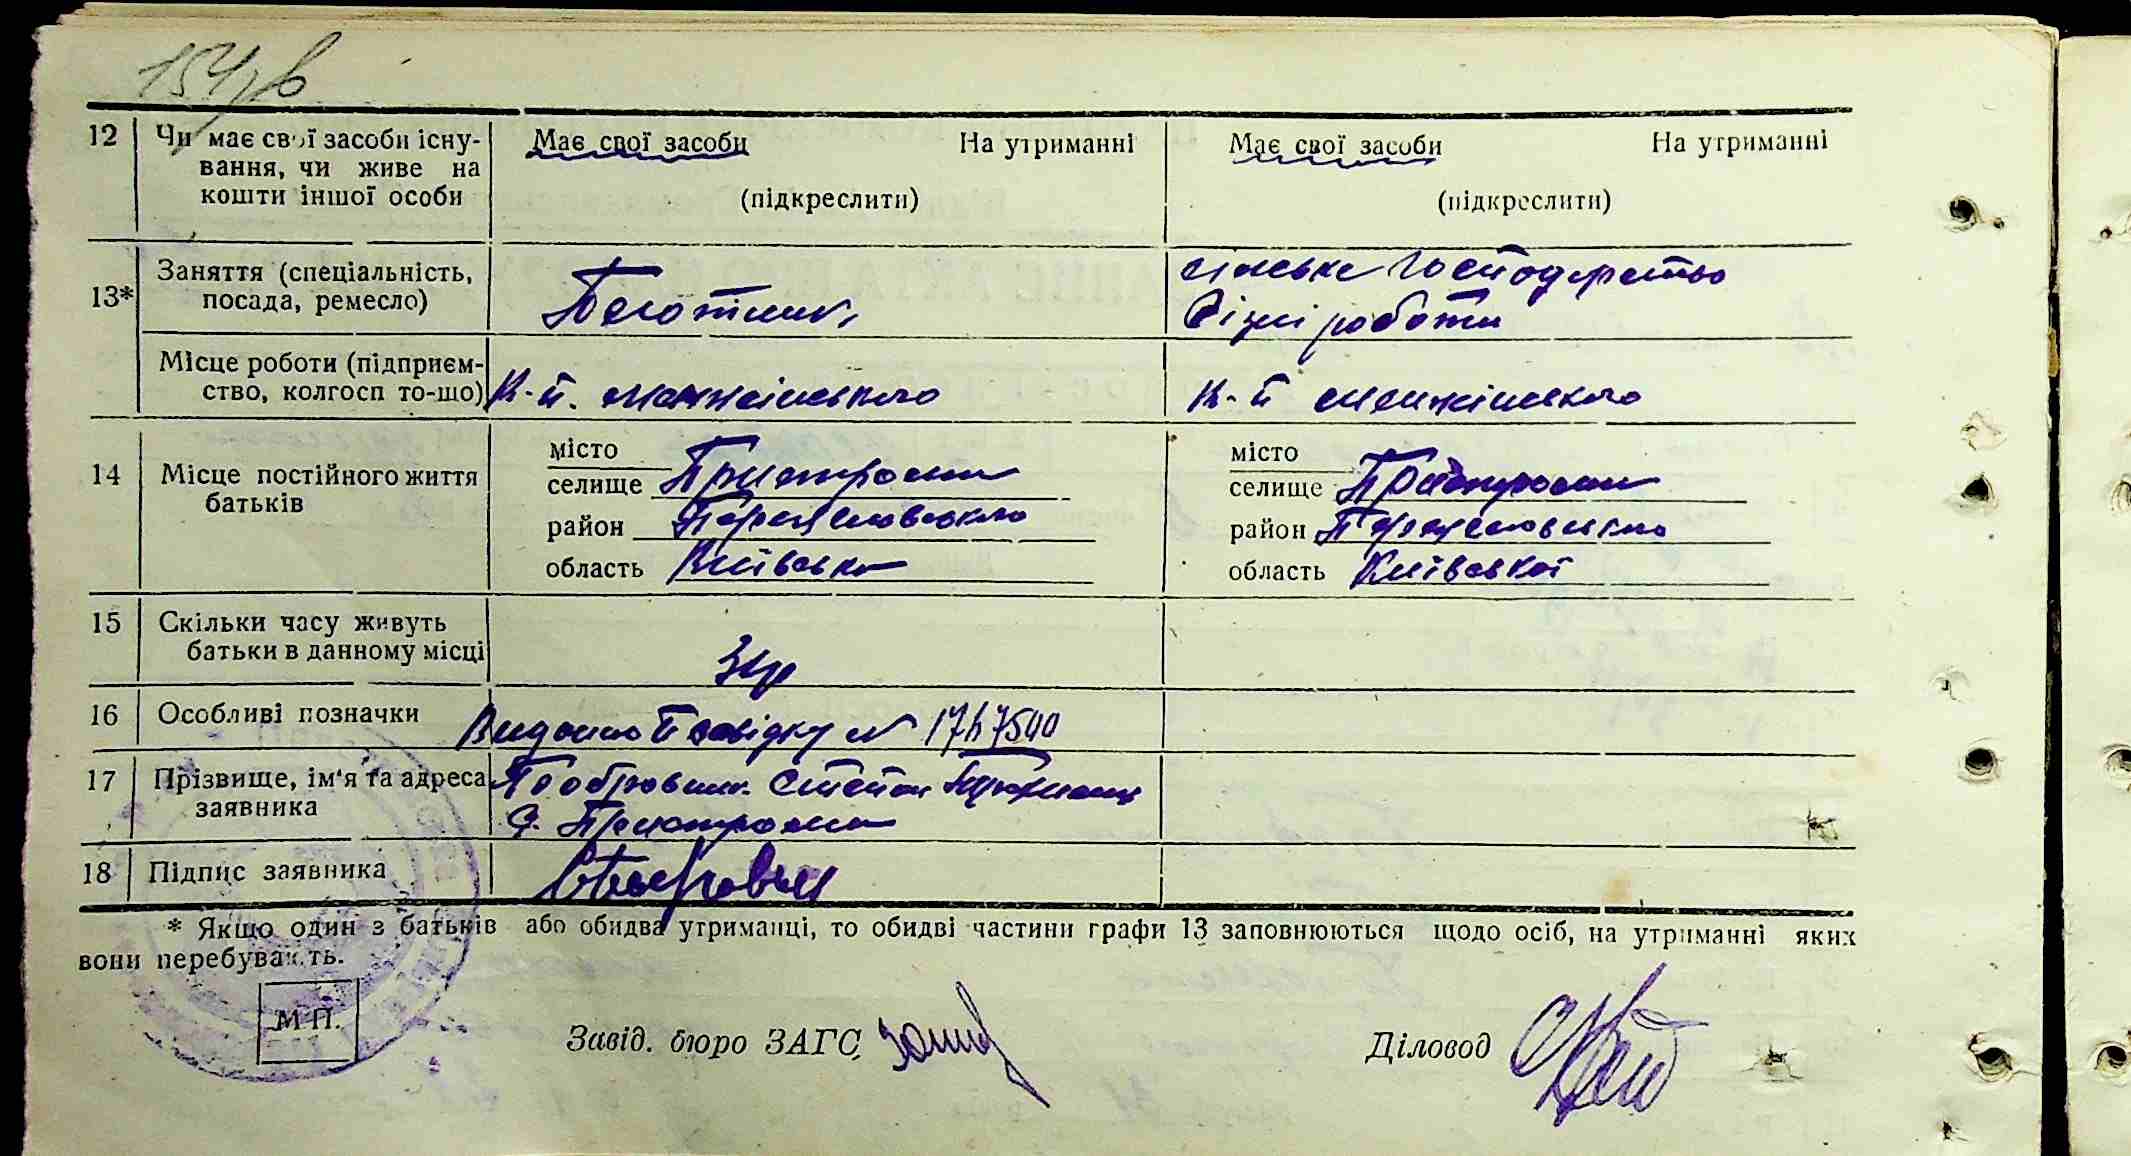 154зв
12 Чи має свої засоби існу- Має свої засоби На утриманні Має свої засоби На утриманні
вання, чи живе на
кошти іншої особи (підкреслити) (підкреслити)
13* Заняття (спеціальність, сільське господарство
посада, ремесло) різні роботи
Місце роботи (підприєм-
ство, колгосп то-що) К-п. К-п менжінського
місто місто
14 Місце постійного життя селище Пристроми селище Пристроми
батьків район Переяславського район Переяславського
область Київська область Київської
15 Скільки часу живуть
батьки в данному місці
16 Особливі позначки Видано посвідку N
17 Прізвище, ім'я та адреса Степан
заявника с. Пристроми
18 Підпис заявника
* Якщо один з батьків або обидва утриманці, то обидві частини графи 13 заповнюються щодо осіб, на утриманні яких
вони перебувають.
М П.
Завід. бюро ЗАГС Діловод